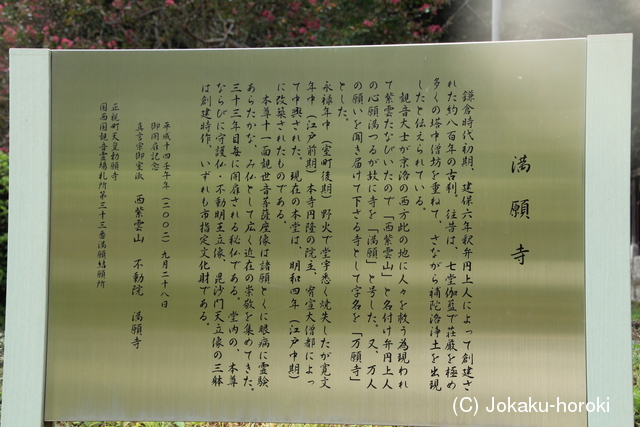 満願寺
鎌倉時代初期、建保六年釈弁円上人によって創建さ
れた約八百年の古刹。往昔は、七堂伽藍で荘厳を極め
多くの塔中僧坊を重ねて、さながら補陀洛浄土を出現
したと伝えられている。
観音大士が京洛の西方此の地に人々を救う為現われ
て紫雲たなびいたので「西紫雲山」と名付け弁円上人
の心願満つるが故に寺を「満願」と号した。又、万人
の願いを聞き届けて下さる寺として字名を「万願寺」
とした。
永禄年中（室町後期）野火で堂宇悉く焼失したが寛文
年中（江戸前期）本寺円隆の院主、宥宣大僧都によっ
て中興された、現在の本堂は、明和四年（江戸中期）
に改築されたものである。
本尊十一面観世音菩薩座像は諸願とくに眼病に霊験
あらたかな、み仏として広く近在の崇敬を集めてきた。
三十三年目毎に開扉される秘仏である。堂内の、本尊
ならびに守護仏・不動明王立像、毘沙門天立像の三躰
は創建時作、いずれも市指定文化財である。
平成十四壬午年（二〇〇二）九月二十八日
御開扉記念
真言宗御室派 西紫雲山 不動院 満願寺
正親町天皇勅願寺
国西国観音霊場札所第三十三番満願結願所
(C) Jokaku-horoki